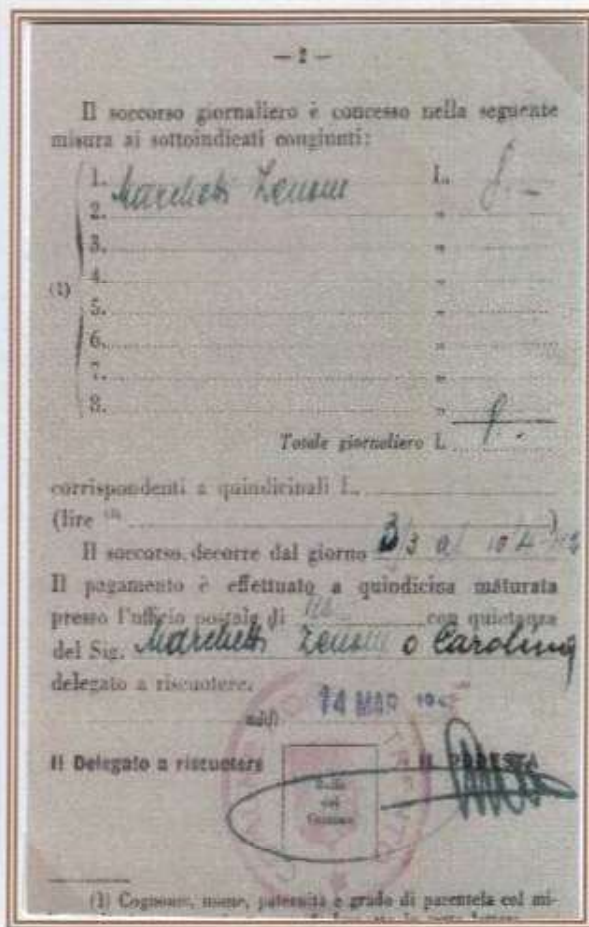 — 2 —
Il soccorso giornaliero è concesso nella seguente
misura ai sottoindicati congiunti:
1. Marchetti Zenoni L. 8.-
2. "
3. "
(1) 4. "
5. "
6. "
7. "
8. "
Totale giornaliero L. 8.-
corrispondenti a quindicinali L.
(lire )
Il soccorso decorre dal giorno
Il pagamento è effettuato a quindicina maturata
presso l'ufficio postale di con quietanza
del Sig. Marchetti Zenoni o Carolina
delegato a riscuotere.
addì 14 MAR
Il Delegato a riscuotere IL PODESTÀ
Bollo
del
Comune
(1) Cognome, nome, paternità e grado di parentela col mi-